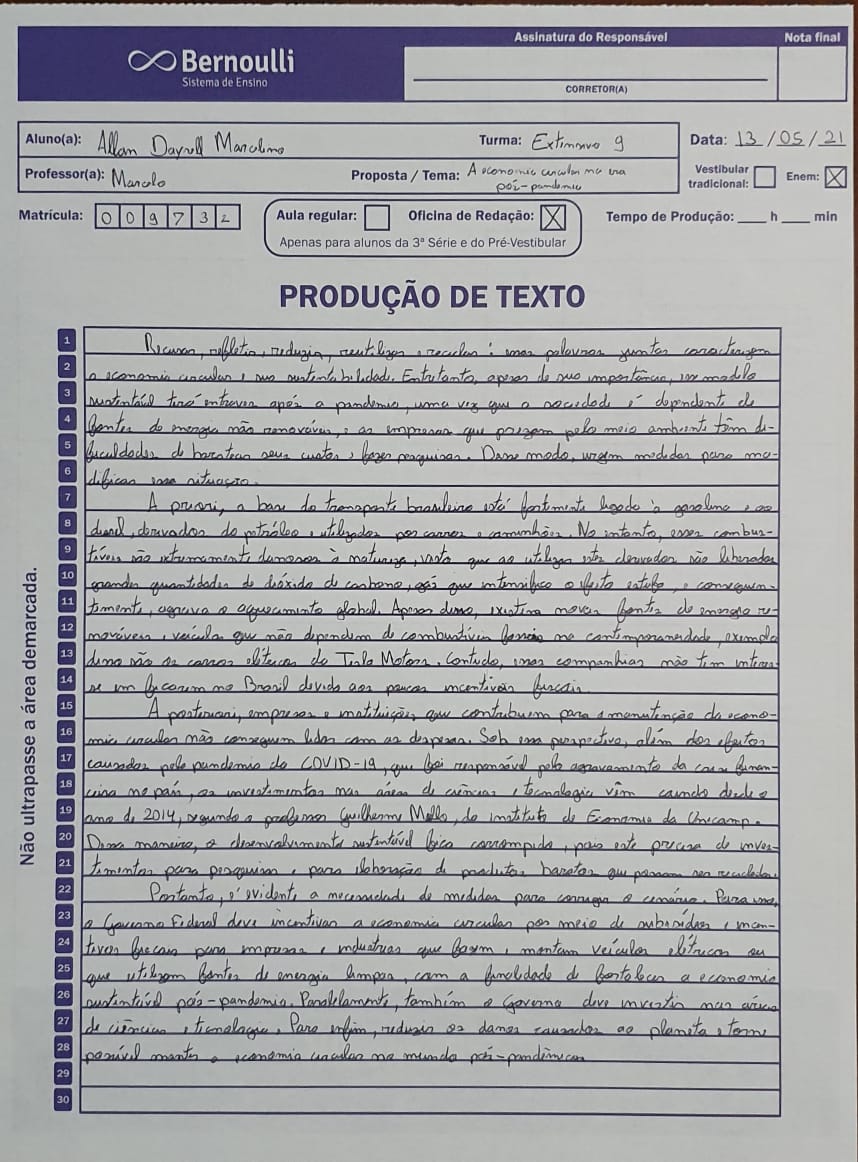 Assinatura do Responsável
Nota final
Bernoulli
Sistema de Ensino
CORRETOR(A)
Aluno(a): Allan Dayrell Marcolino
Turma: Extensivo 9
Data: 13/05/21
Professor(a): Marcelo
Proposta / Tema: A economia circular na era
pós-pandemia
Vestibular
tradicional:
Enem: X
Matrícula: 0 0 9 7 3 2
Aula regular:
Oficina de Redação: X
Apenas para alunos da 3ª Série e do Pré-Vestibular
Tempo de Produção: ____ h ____ min
PRODUÇÃO DE TEXTO
Não ultrapasse a área demarcada.
1 Recusar, refletir, reduzir, reutilizar e reciclar: essas palavras juntas caracterizam
2 a economia circular e sua sustentabilidade. Entretanto, apesar de sua importância, esse modelo
3 sustentável terá entraves após a pandemia, uma vez que a sociedade é dependente de
4 fontes de energia não renováveis, e as empresas que prezam pelo meio ambiente têm di-
5 ficuldades de baratear seus custos e fazer pesquisas. Desse modo, urgem medidas para mo-
6 dificar essa situação.
7 A priori, a base do transporte brasileiro está fortemente ligada à gasolina e ao
8 diesel, derivados do petróleo e utilizados por carros e caminhões. No entanto, esses combus-
9 tíveis são extremamente danosos à natureza, visto que ao utilizar estes derivados são liberadas
10 grandes quantidades de dióxido de carbono, gás que intensifica o efeito estufa, e consequen-
11 temente, agrava o aquecimento global. Apesar disso, existem novas fontes de energia re-
12 nováveis e veículos que não dependem de combustíveis fósseis na contemporaneidade, exemplo
13 disso são os carros elétricos da Tesla Motors. Contudo, essas companhias não tem interes-
14 se em ficarem no Brasil devido aos poucos incentivos fiscais.
15 A posteriori, empresas e instituições que contribuem para a manutenção da econo-
16 mia circular não conseguem lidar com as despesas. Sob essa perspectiva, além dos efeitos
17 causados pela pandemia do COVID-19, que foi responsável pelo agravamento da crise finan-
18 ceira no país, os investimentos nas áreas de ciências e tecnologia vêm caindo desde o
19 ano de 2014, segundo o professor Guilherme Mello, do instituto de Economia da Unicamp.
20 Dessa maneira, o desenvolvimento sustentável fica corrompido, pois este precisa de inves-
21 timentos para pesquisas e para elaboração de produtos baratos que possam ser reciclados.
22 Portanto, é evidente a necessidade de medidas para corrigir o cenário. Para isso,
23 o Governo Federal deve incentivar a economia circular por meio de subsídios e incen-
24 tivos fiscais para empresas e indústrias que fazem e montam veículos elétricos ou
25 que utilizam fontes de energia limpas, com a finalidade de fortalecer a economia
26 sustentável pós-pandemia. Paralelamente, também o Governo deve investir nas áreas
27 de ciências e tecnologia. Para enfim, reduzir os danos causados ao planeta e torne
28 possível manter a economia circular no mundo pós-pandêmico
29
30